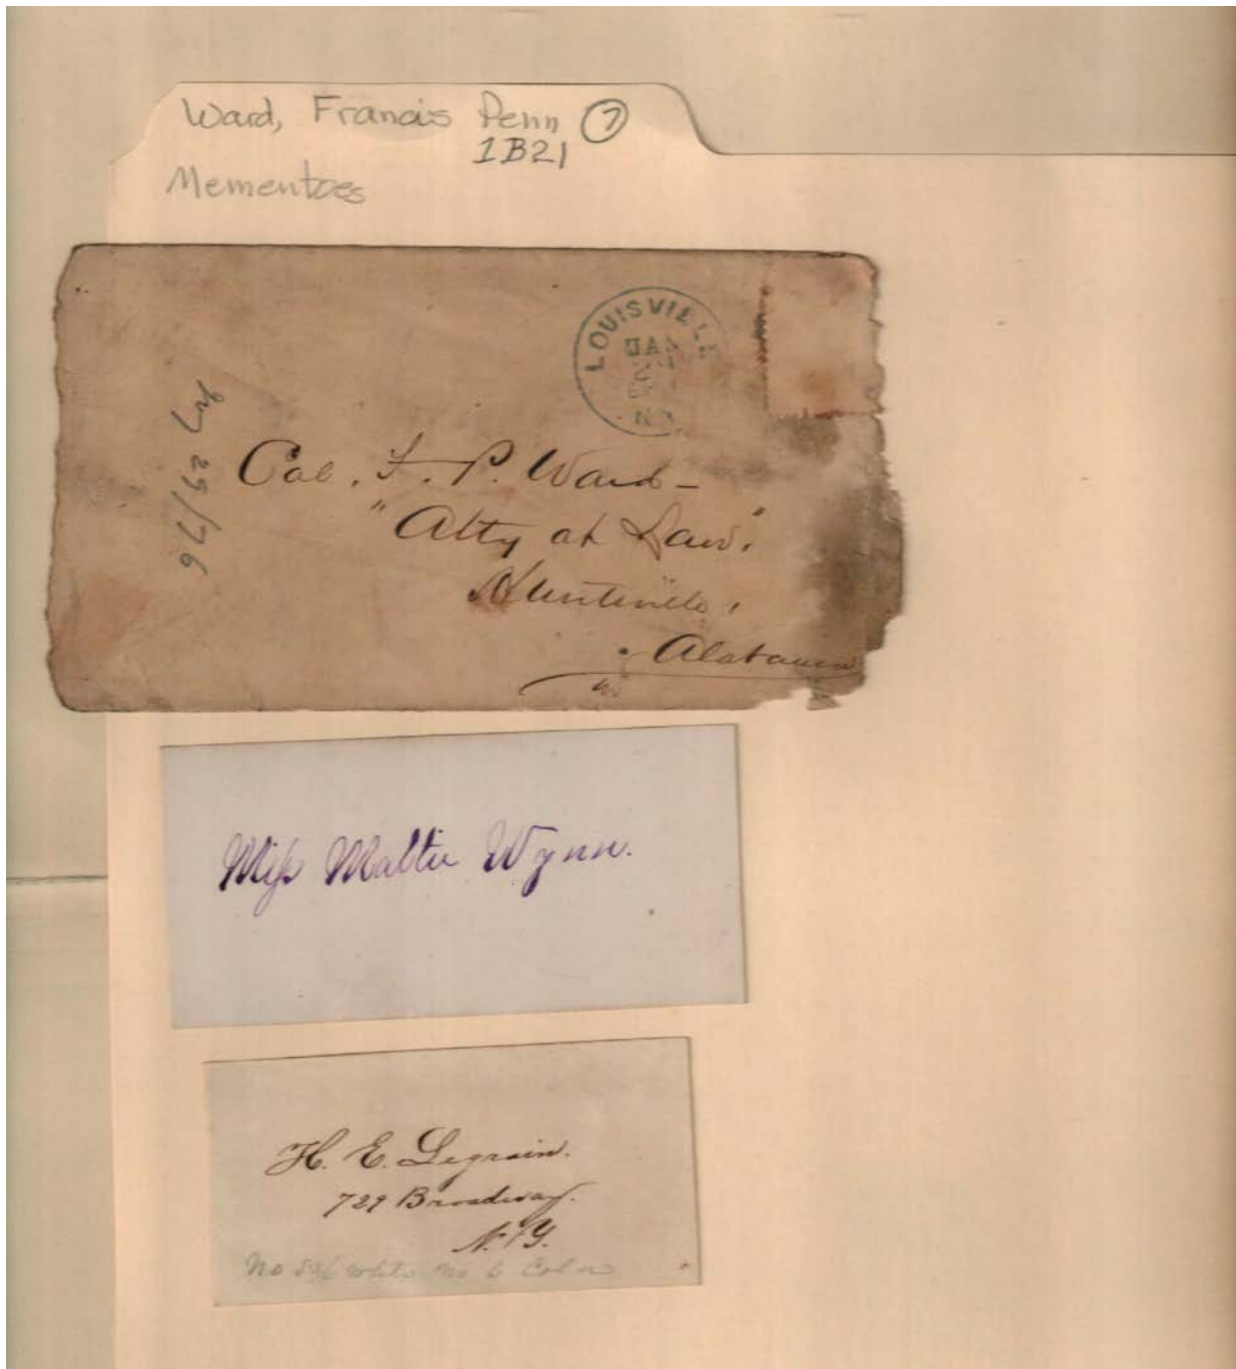 Ward, Francis Penn 7
1B21
Mementoes
LOUISVILLE
JAN
Col. F. P. Ward-
"Atty at Law."
Huntsville,
Alabama
29/76
Miss Mattie Wynn.
H. E. Legrain.
729 Broadway.
N. Y.
No white no 6 Color